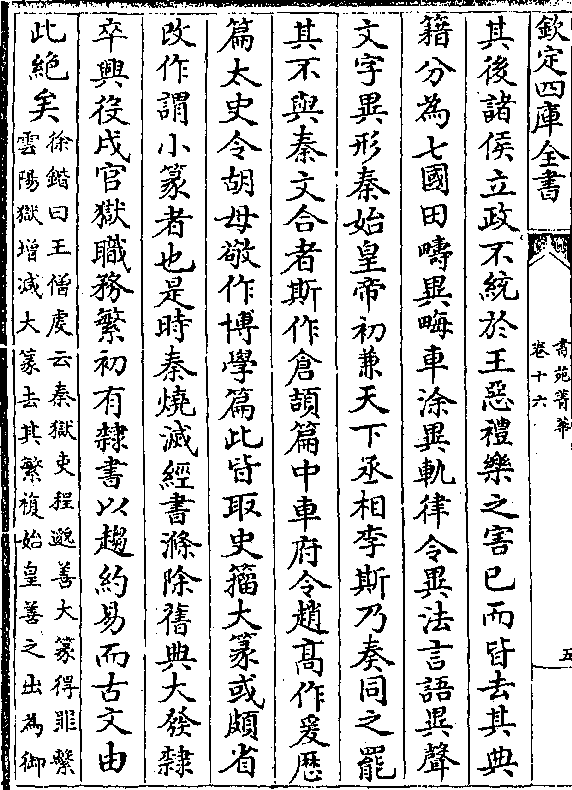 欽定四庫全書
書苑菁華
卷十六
五
其後諸侯立政不統於王惡禮樂之害已而皆去其典
籍分為七國田疇異畮車涂異軌律令異法言語異聲
文字異形秦始皇帝初兼天下丞相李斯乃奏同之罷
其不與秦文合者斯作倉頡篇中車府令趙髙作爰歴
篇太史令胡母敬作博學篇此皆取史籀大篆或頗省
改作謂小篆者也是時秦燒滅經書滌除舊典大發隸
卒興役戍官獄職務繁初有隸書以趨約易而古文由
此絶矣
徐鍇曰王僧虔云秦獄吏程邈善大篆得罪繫
雲陽獄増減大篆去其繁複始皇善之出為御